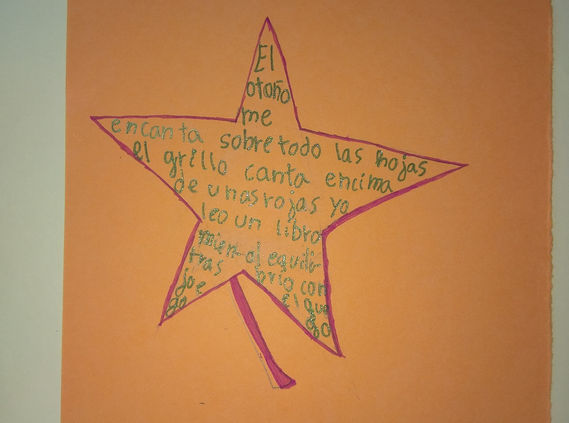 El
otoño
me
encanta sobre todo las hojas
el grillo canta encima
de unas rojas yo
leo un libro
mien-
tras
jue
go
al equili-
brio con
el que
go